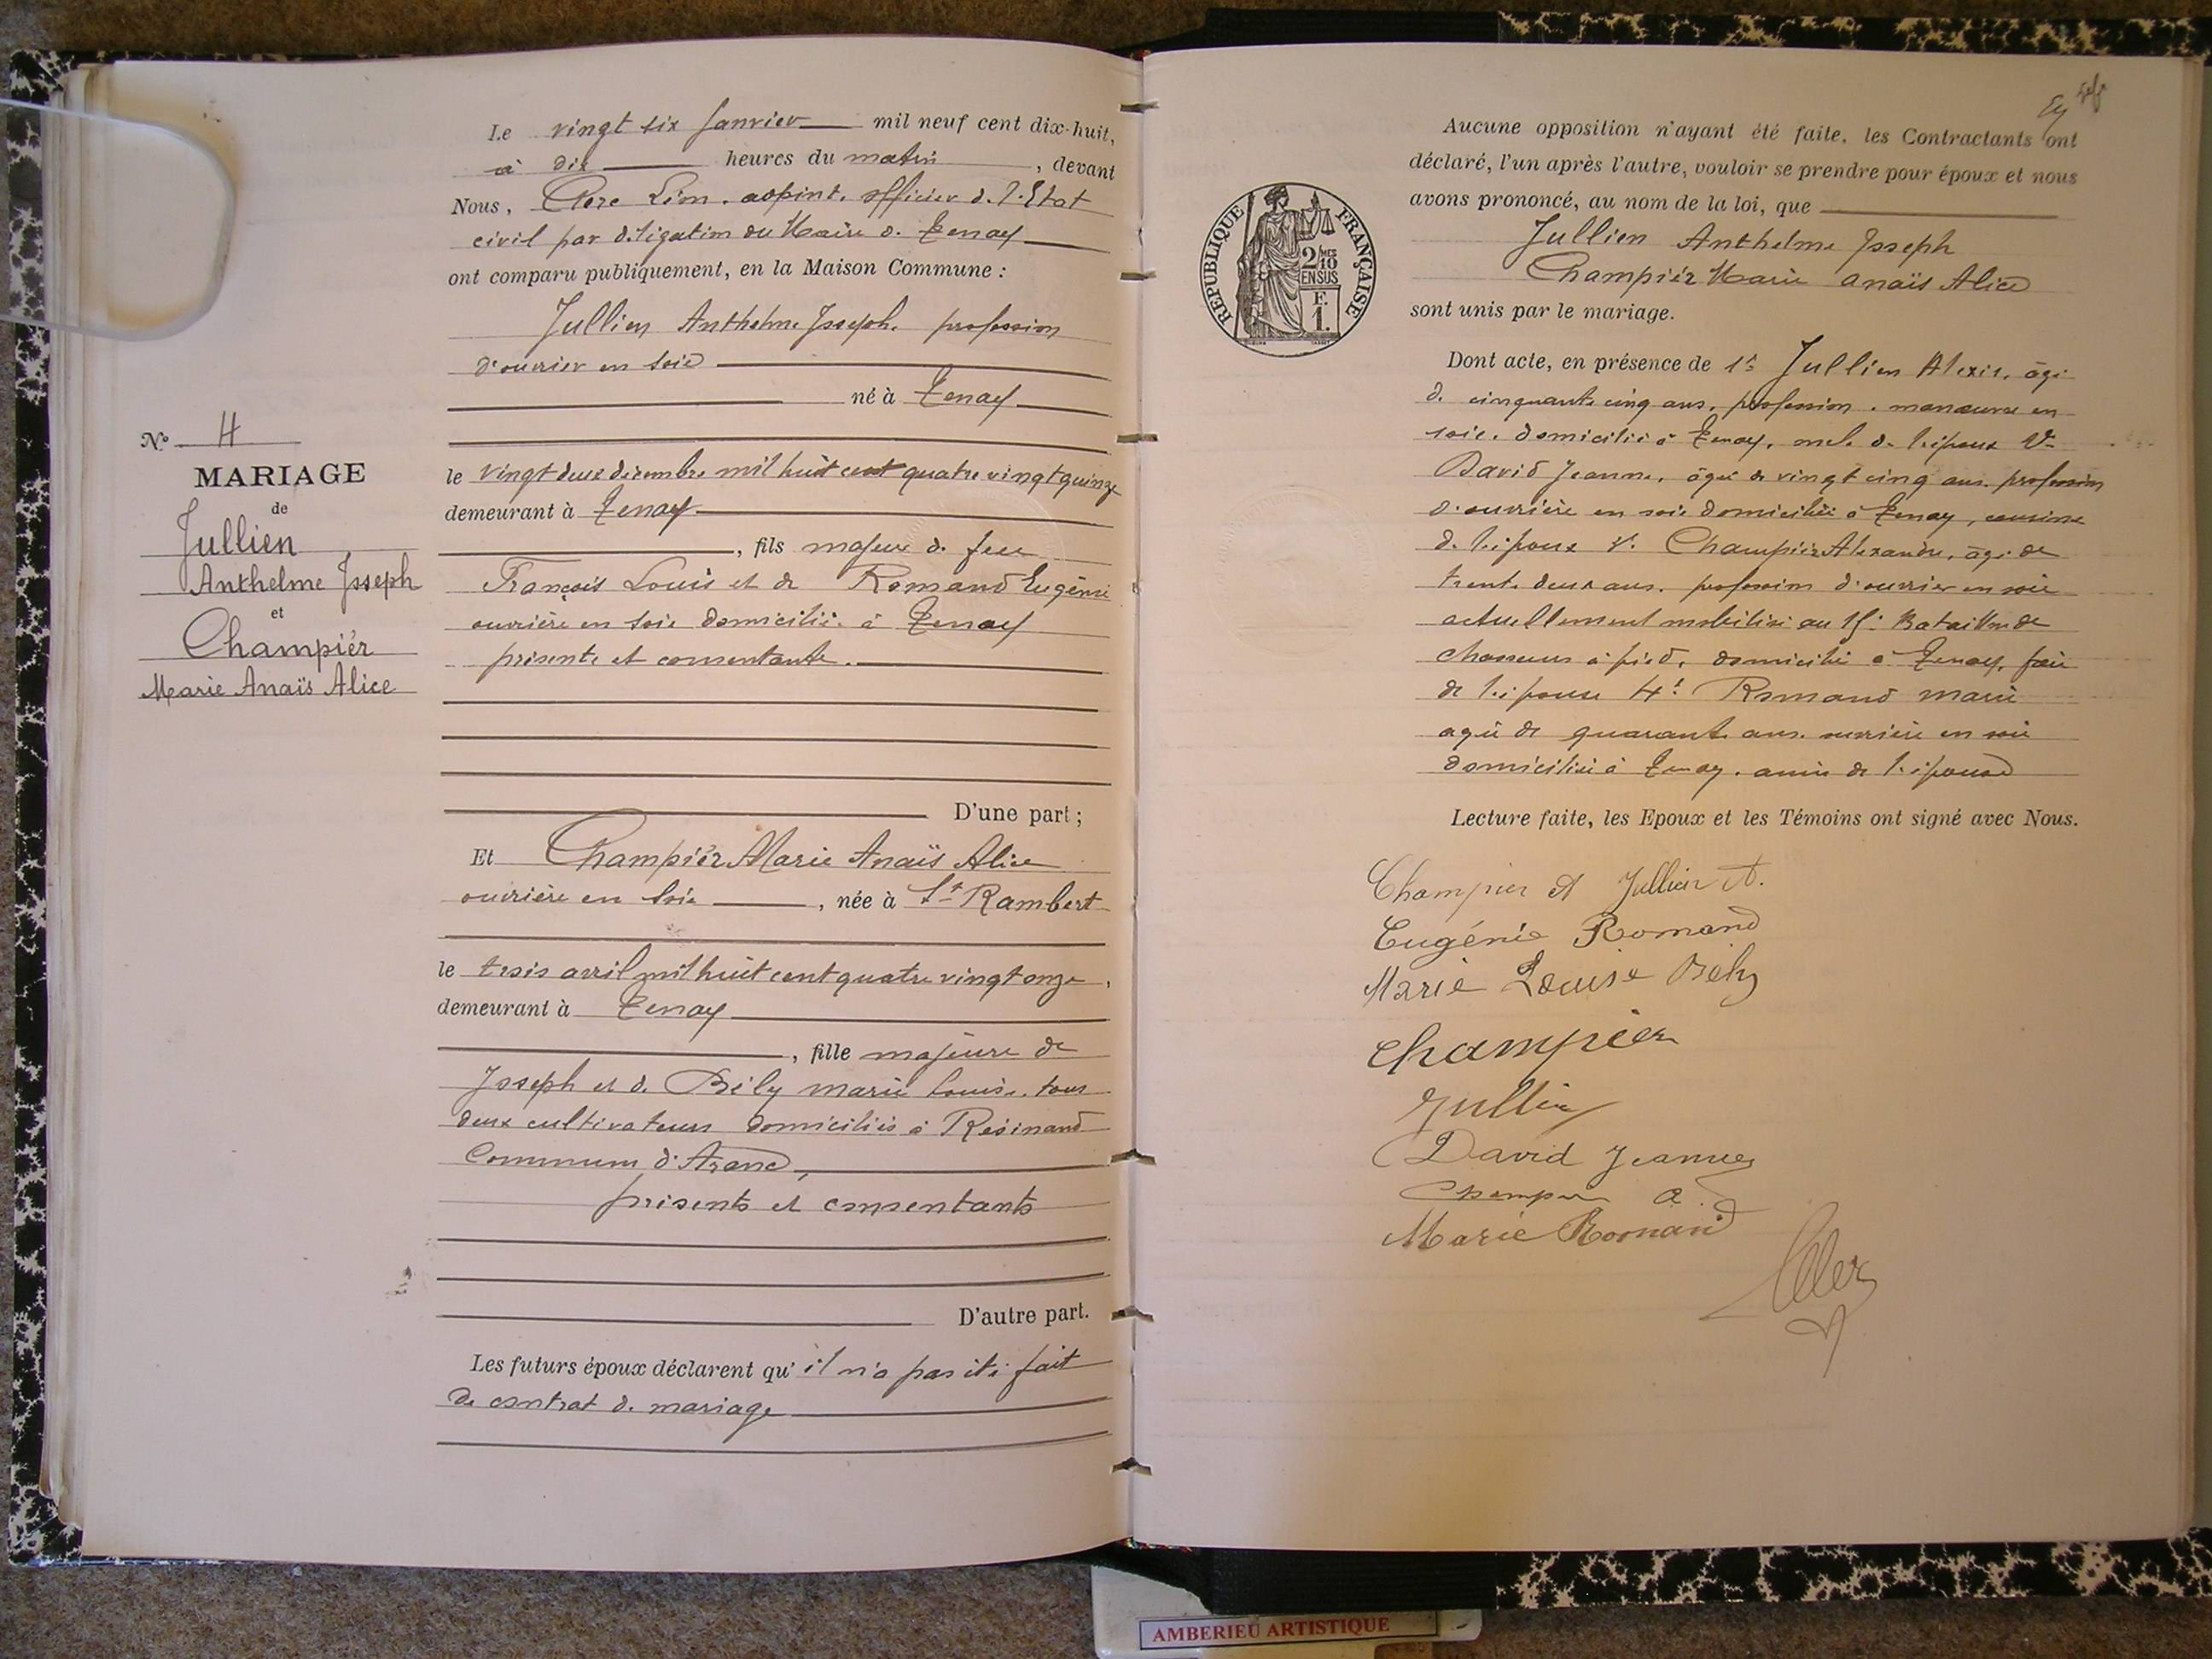 Le vingt six Janvier mil neuf cent dix-huit,
à dix heures du matin, devant
Nous, Clerc Léon. adjoint. officier d. l'Etat
civil par déligation du Maire d. Tenay
ont comparu publiquement, en la Maison Commune :
Jullien Anthelme Joseph. profession
d'ouvrier en soie
né à Tenay
le vingt deux décembre mil huit cent quatre vingt quinze
demeurant à Tenay
, fils majeur d. feu
François Louis et de Romand Eugénie
ouvrière en soie domiciliée à Tenay
présente et consentante.
D'une part ;
Et Champiér Marie Anaïs Alice
ouvrière en soie, née à St Rambert
le trois avril mil huit cent quatre vingt onze,
demeurant à Tenay
, fille majeure de
Joseph et d. Bély marie Louise. tous
deux cultivateurs domiciliés à Résinand
Commune d'Aranc,
présents et consentants
D'autre part.
Les futurs époux déclarent qu'il n'a pas été fait
de contrat d. mariage
N° 4
MARIAGE
de
Jullien
Anthelme Joseph
et
Champiér
Marie Anaïs Alice
REPUBLIQUE FRANÇAISE
2/10
EN SUS
F.
1.
Aucune opposition n'ayant été faite, les Contractants ont
déclaré, l'un après l'autre, vouloir se prendre pour époux et nous
avons prononcé, au nom de la loi, que
Jullien Anthelme Joseph
Champiér Marie anaïs Alice
sont unis par le mariage.
Dont acte, en présence de 1° Jullien Alexis, âgé
d. cinquante cinq ans, profession. manœuvre en
soie. domicilié à Tenay, oncle d. l'époux 2°
David Jeanne, âgée de vingt cinq ans. profession
d'ouvrière en soie domiciliée à Tenay, cousine
d. l'époux 3° Champiér Alexandre, âgé de
trente deux ans. profession d'ouvrier en soie
actuellement mobilisé au 15e Bataillon de
chasseurs à pied, domicilié à Tenay, frère
de l'épouse 4° Romand marie
agée de quarante ans. ouvrière en soie
domiciliée à Tenay. amie de l'épouse
Lecture faite, les Epoux et les Témoins ont signé avec Nous.
Champier A Jullien A.
Eugénie Romand
Marie Louise Bély
Champier
Jullien
David Jeanne
Champier A.
Marie Romand
Clerc
AMBERIEU ARTISTIQUE